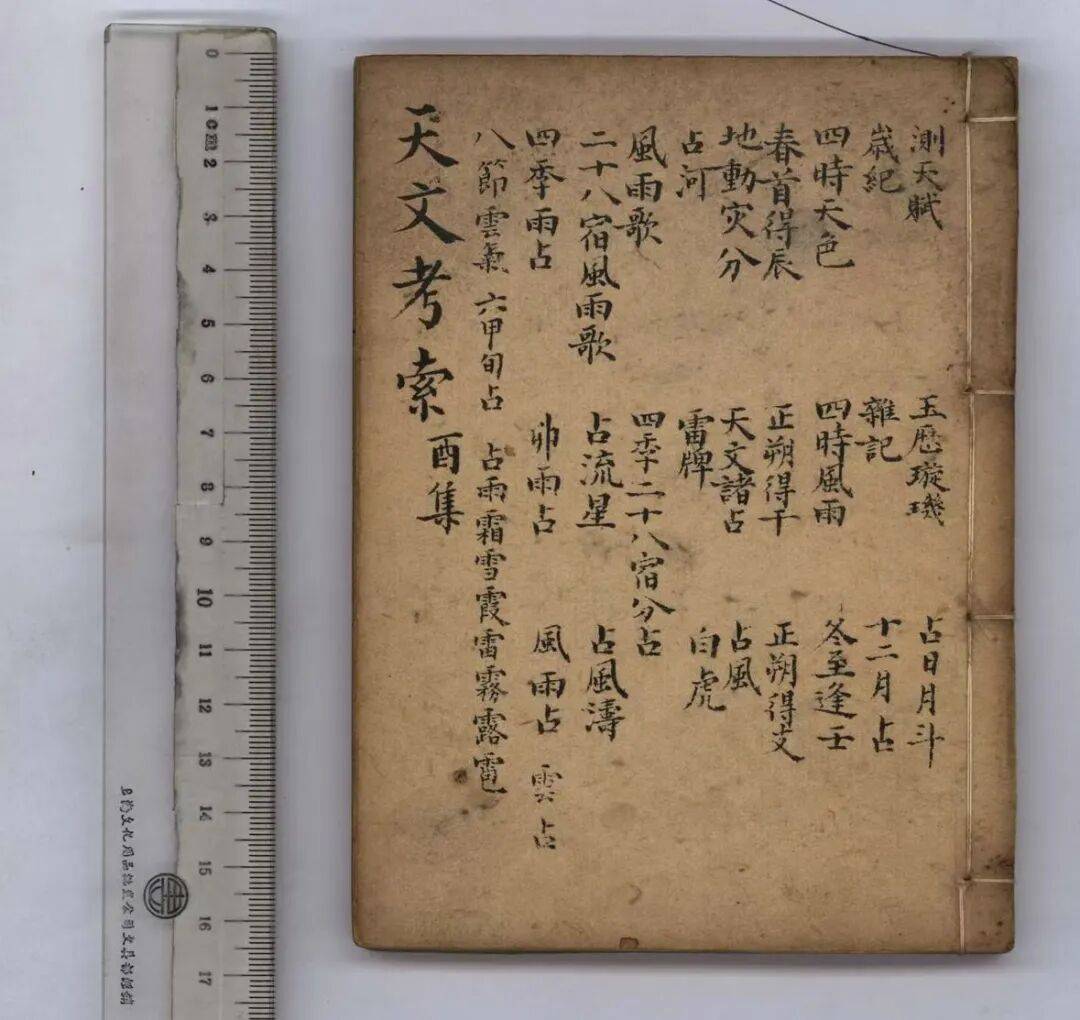 測天賦　玉歷璇璣　占日月斗
歲紀　雜記　十二月占
四時天色　四時風雨　冬至逢壬
春首得辰　正朔得干　正朔得支
地動灾分　天文諸占　占風
占河　雷牌　白虎
風雨歌　四季二十八宿分占
二十八宿風雨歌　占流星　占風濤
四季雨占　卯雨占　風雨占　雲占
八節雲氣　六甲旬占　占雨霜雪霞雷霧露雹
天文考索
酉集
0
1 CM
2
3
4
5
6
7
8
9
10
11
12
13
14
15
16
17